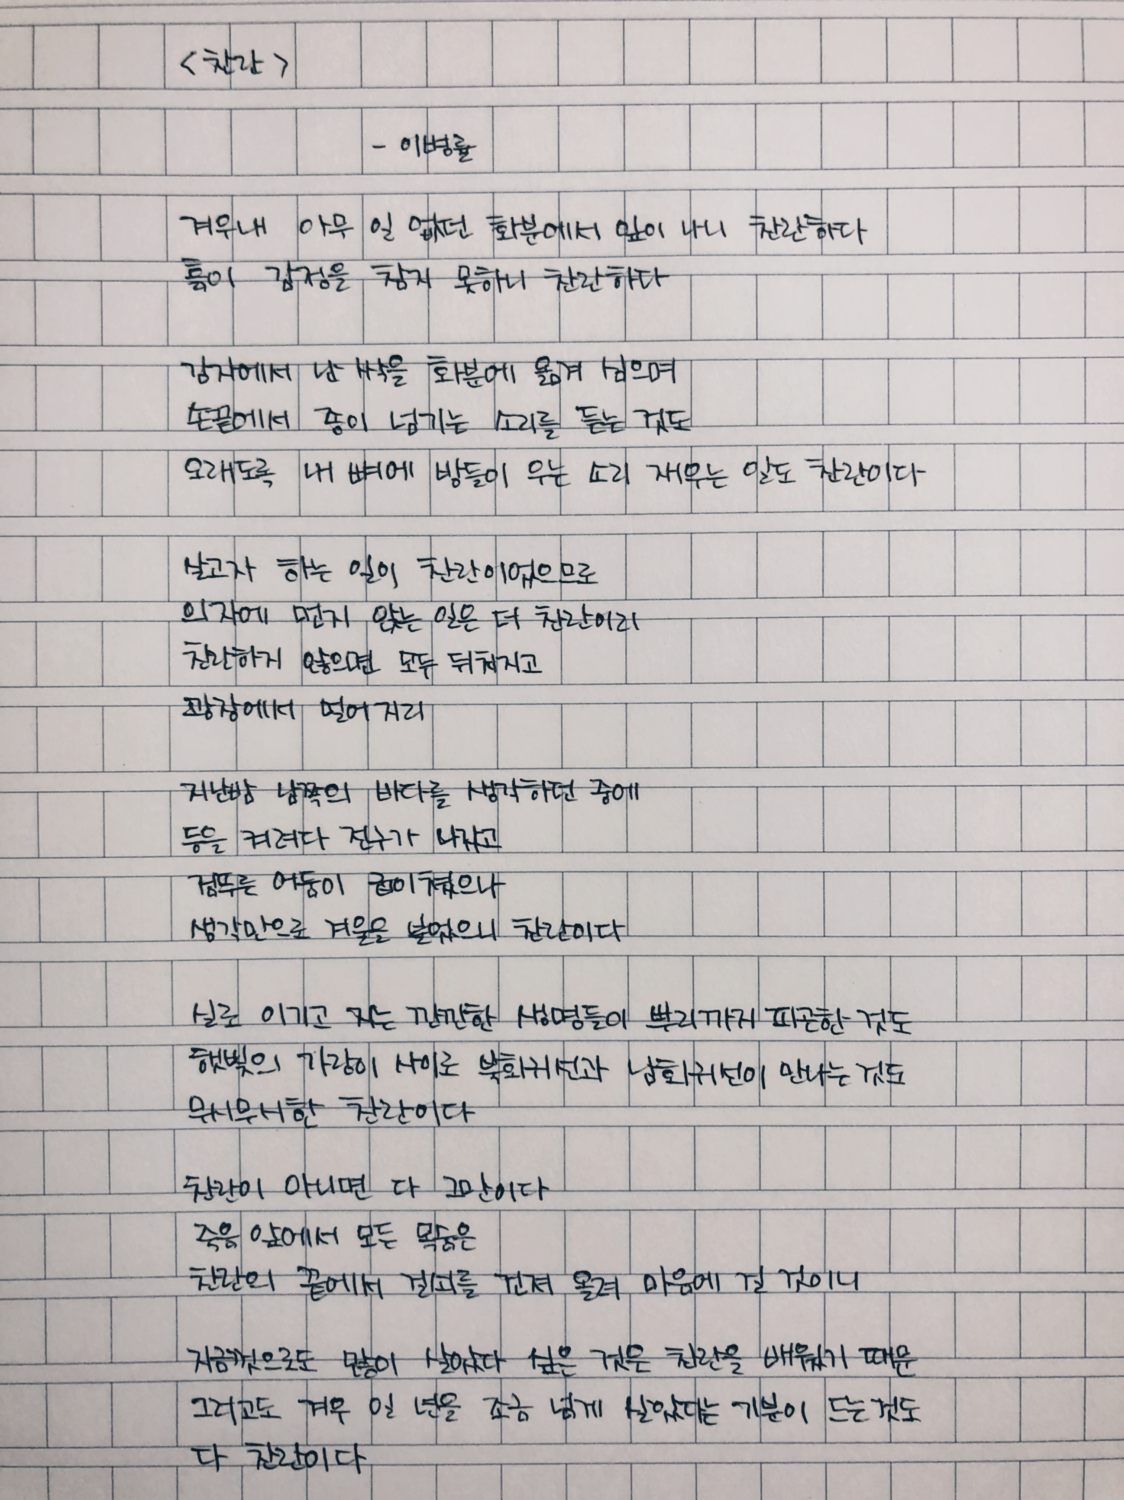 <찬란>
- 이병률
겨우내 아무 일 없던 화분에서 잎이 나니 찬란하다
흙이 감정을 참지 못하니 찬란하다
감자에서 난 싹을 화분에 옮겨 심으며
손끝에서 종이 넘기는 소리를 듣는 것도
오래도록 내 뼈에 방들이 우는 소리 재우는 일도 찬란이다
살고자 하는 일이 찬란이었으므로
의자에 먼지 앉는 일은 더 찬란이리
찬란하지 않으면 모두 뒤처지고
광장에서 멀어지리
지난밤 남쪽의 바다를 생각하던 중에
등을 켜려다 전구가 나갔고
검푸른 어둠이 굽이쳤으나
생각만으로 겨울을 불렀으니 찬란이다
실로 이기고 지는 깐깐한 생명들이 뿌리까지 피곤한 것도
햇빛의 가랑이 사이로 북회귀선과 남회귀선이 만나는 것도
무시무시한 찬란이다
찬란이 아니면 다 그만이다
죽음 앞에서 모든 목숨은
찬란의 끝에서 걸쇠를 건져 올려 마음에 걸 것이니
지금껏으로도 많이 살았다 싶은 것은 찬란을 배웠기 때문
그러고도 겨우 일 년을 조금 넘게 살았다는 기분이 드는 것도
다 찬란이다